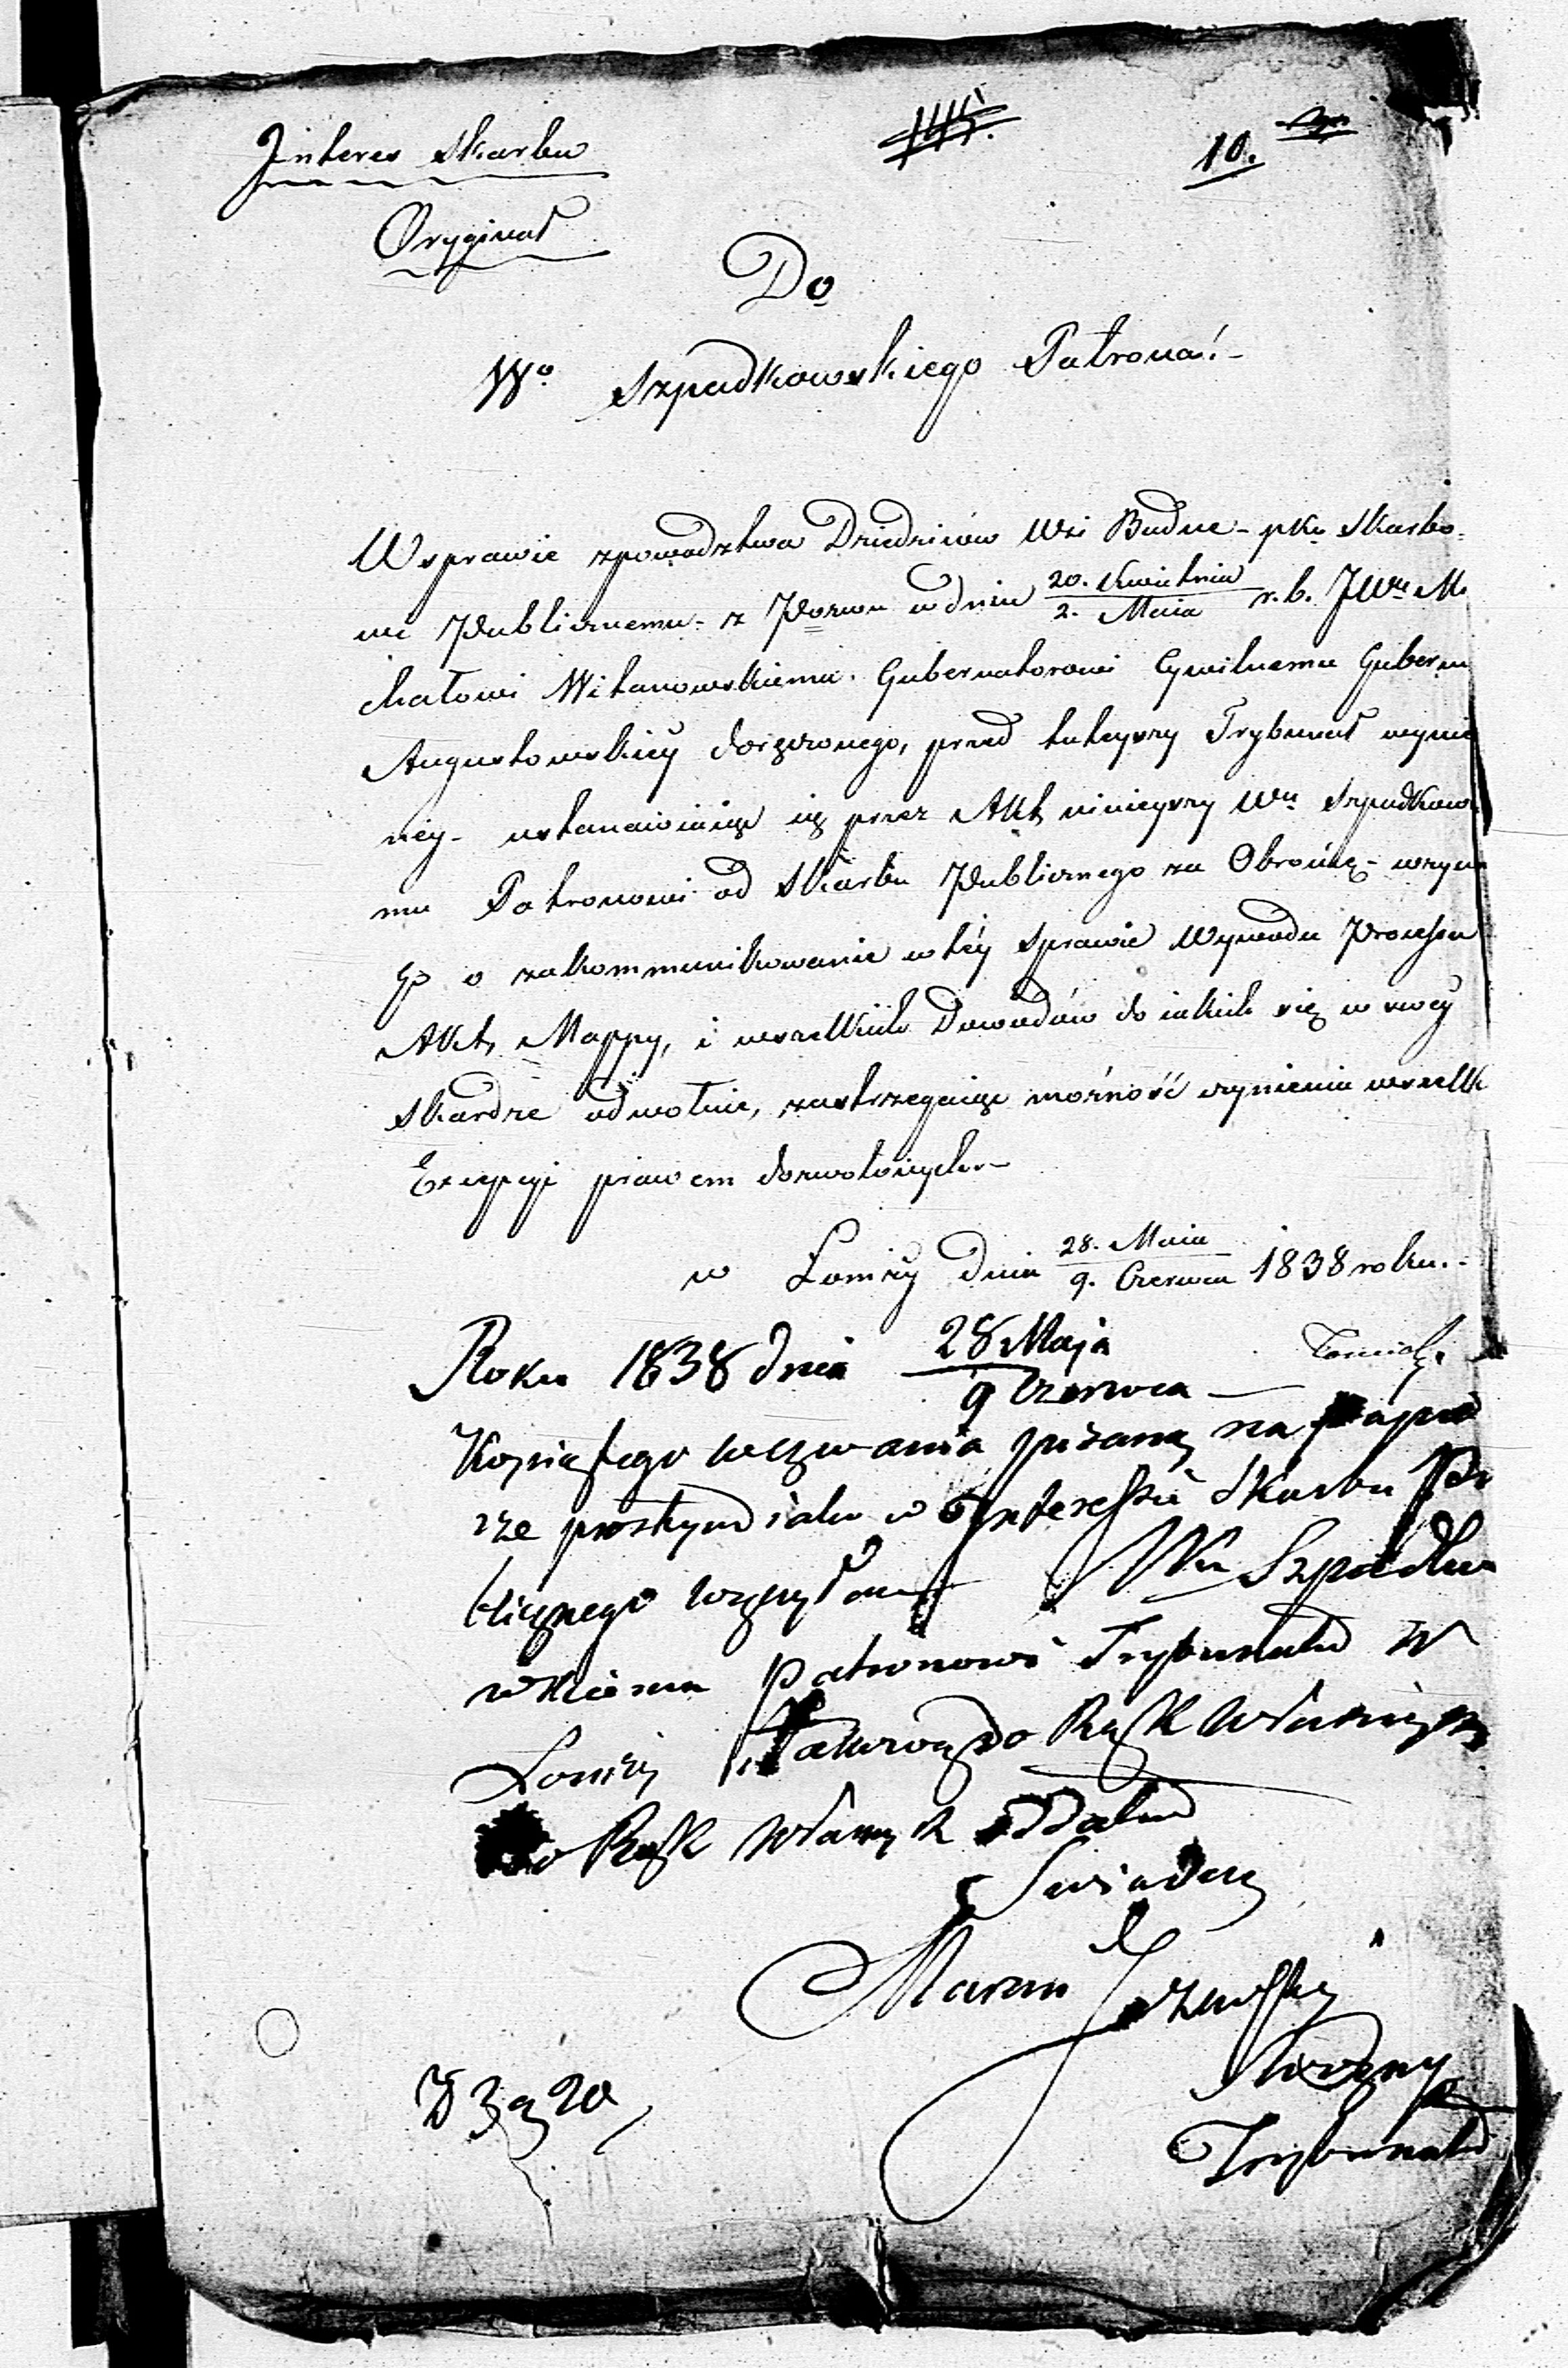 Interes Skarbu
10.
Oryginał
Do
Wo Szpadkowskiego Patrona.
W sprawie z powództwa Dziedziców Wsi Budne - pko Skarbo-
wi Publicznemu - z Pozwu w dniu 20. Kwietnia / 2. Maia r. b. JWu Mi
chałowi Witanowskiemu Gubernatorowi Cywilnemu Gubern
Augustowskiey doręczonego, przed tuteyszy Trybunał wynie
ney - ustanawiaiąc się przez Akt ninieyszy Wu Szpadkow
mu Patronowi od Skarbu Publicznego za Obrońcę - wzywa
Go o zakommunikowanie w téy sprawie Wywodu Processu
Akt, Mappy, i wszelkich Dowodów do iakich się w swey
Skardze odwołuie, zastrzegaiąc możność czynienia wszelk
Excepcyi prawem dozwolonych.-
w Łomży dnia 28. Maia / 9. Czerwca 1838 roku.-
Roku 1838 dnia 28 Maja / 9 Czerwca
Kopią tego wezwania pisaną na papie
rze prostym iako w Interessie Skarbu Pu
blicznego Wu Szpadko
wskiemu Patronowi Trybunału w
Łomży do Rąk własnych
do Rąk własnych oddałem
Swiadczę
Marcin
Woźny
Trybunału